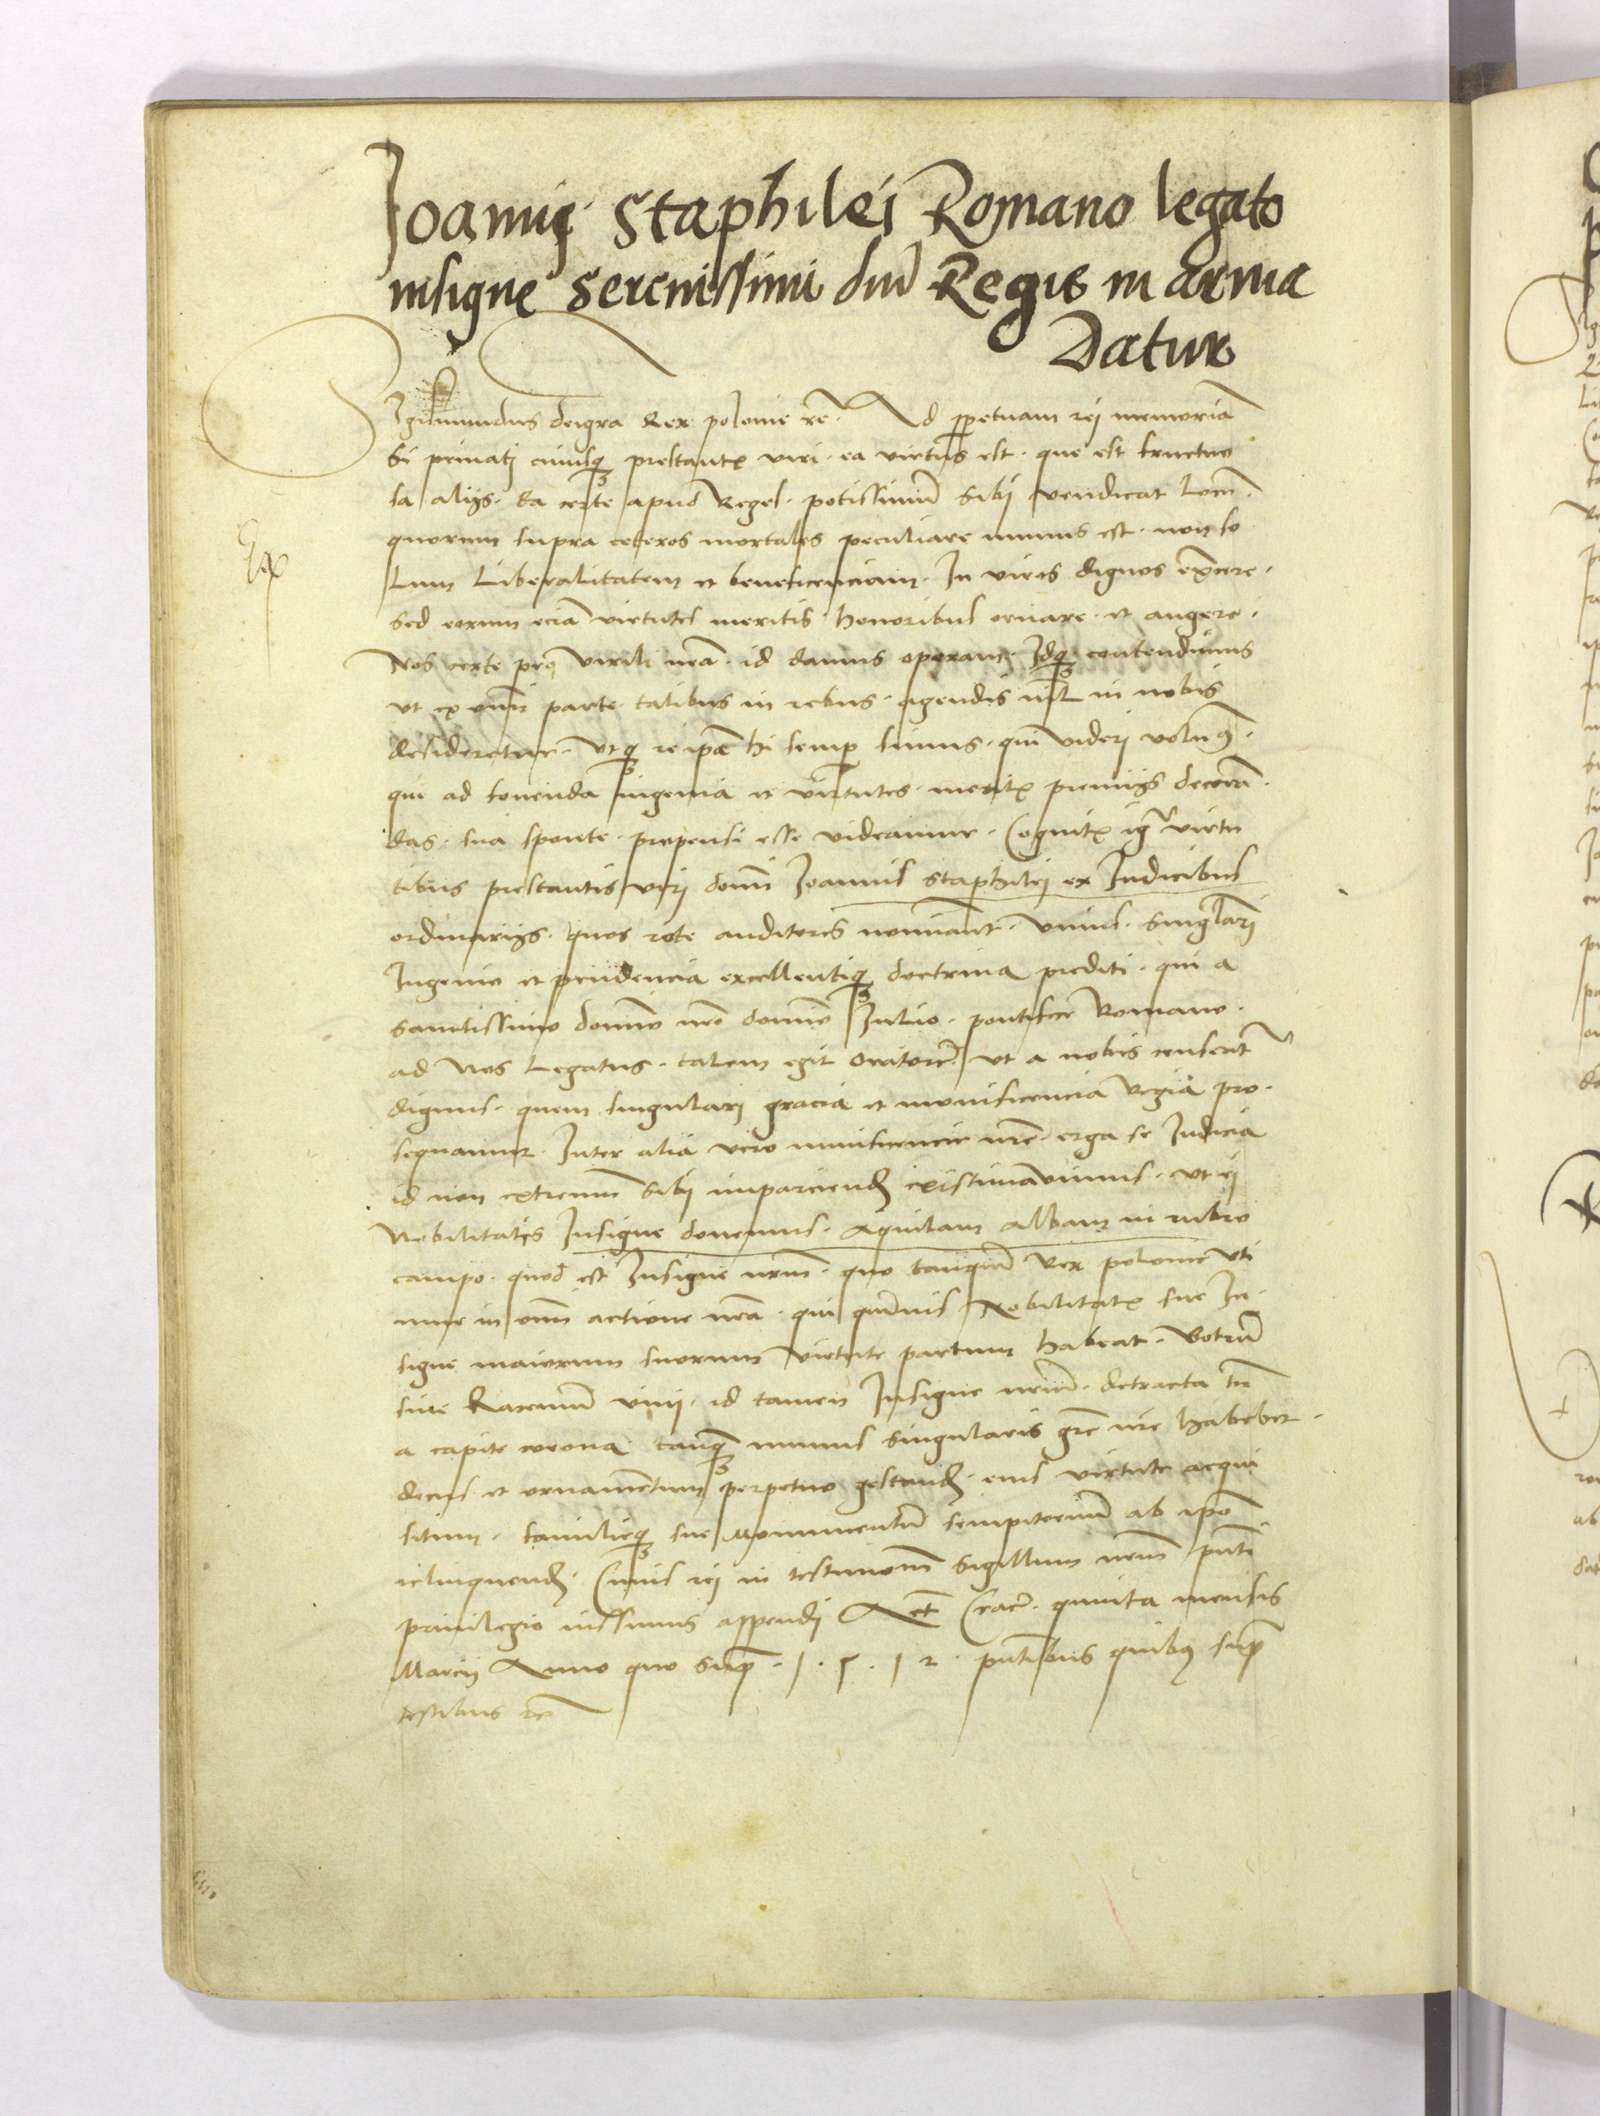 Joannis Staphilei Romano legato
insigne Serenissimi dni Regis in arma
Datur
Sigismundus dei gra Rex polonie rc. Ad ppetuam rei memoriã
Si primatj cuiusq prestantis viri. ea virtus est. que est fructuo
sa aliis. Ea certe apud Reges. potissimũ sibi vendicat locũ.
quorum supra ceteros mortales peculiare munus est. non so
lum Liberalitatem et beneficenciam. In viros dignos exercere.
sed eorum eciã virtutes meritis honoribus ornare. et augere.
Nos certe pro virili nra. id damus operam. Idq contendimus
vt ex omni parte talibus in rebus. agendis nil in nobis
desideretur. Vtq re ipa hi semp simus. qui videri volum9.
qui ad fovenda ingenia et virtutes. meritis premiis decorã
das. sua sponte. propensi esse videamur. Cognitis igr virtu
tibus prestantis viri domini Joannis Staphilej ex Iudicibus
ordinariis. quos rote auditores nominant. vnius. singlari
Ingenio et prudencia excellentiq doctrina prediti. qui a
sanctissimo domino nro domino Julio. pontifice Romano.
ad Nos Legatus. talem egit Oratorẽ. vt a nobis censeat
dignus. quem singulari gracia et munificencia Regia pro
sequamur. Inter alia vero munificencie nre. erga se Iudicia
id non extremum sibi imparciend existimavimus. vt ei
Nobilitatis Insigne donemus. Aquilam albam in rubro
campo. quod est Insigne nrm. quo tanquã Rex polonie vti
mur in omni actione nra. qui quãvis Nobilitatis sue In
signe maiorum suorum virtute partum habeat. Botrũ
sive Racemũ vini. id tamen Insigne nrum. detracta tñ
a capite corona. tanq munus singularis gre nre habebit.
decus et ornamentum perpetuo gestand. eius virtute acqui
situm. familieq sue Monumentũ sempiternũ ab ipo
relinquend. Cuius rei in testimoniũ Sigillum nrm pñti
privilegio iussimus appendi Act Crac. quinta mensis
Marcii Anno quo sup. 1.5.12. pñtibus quib9 sup
testibus rc